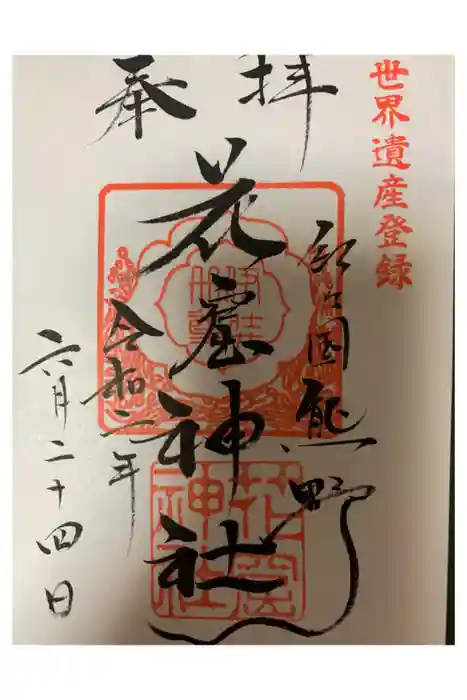 世界遺産登録
奉拝
国熊野
花窟神社
令和二年
六月二十四日
花窟神社